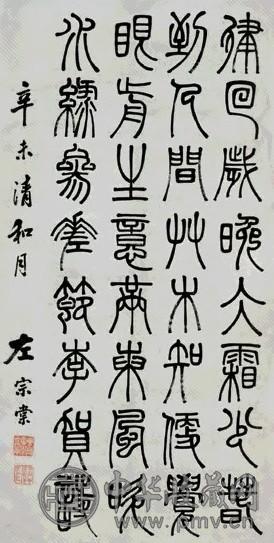 律回歲晚仌霜少春
到人間艸木知便覺
眼前生意滿東風吹
水綠參差節李賀詩
辛未清和月 左宗棠
中华收藏网
www.pmv.cn